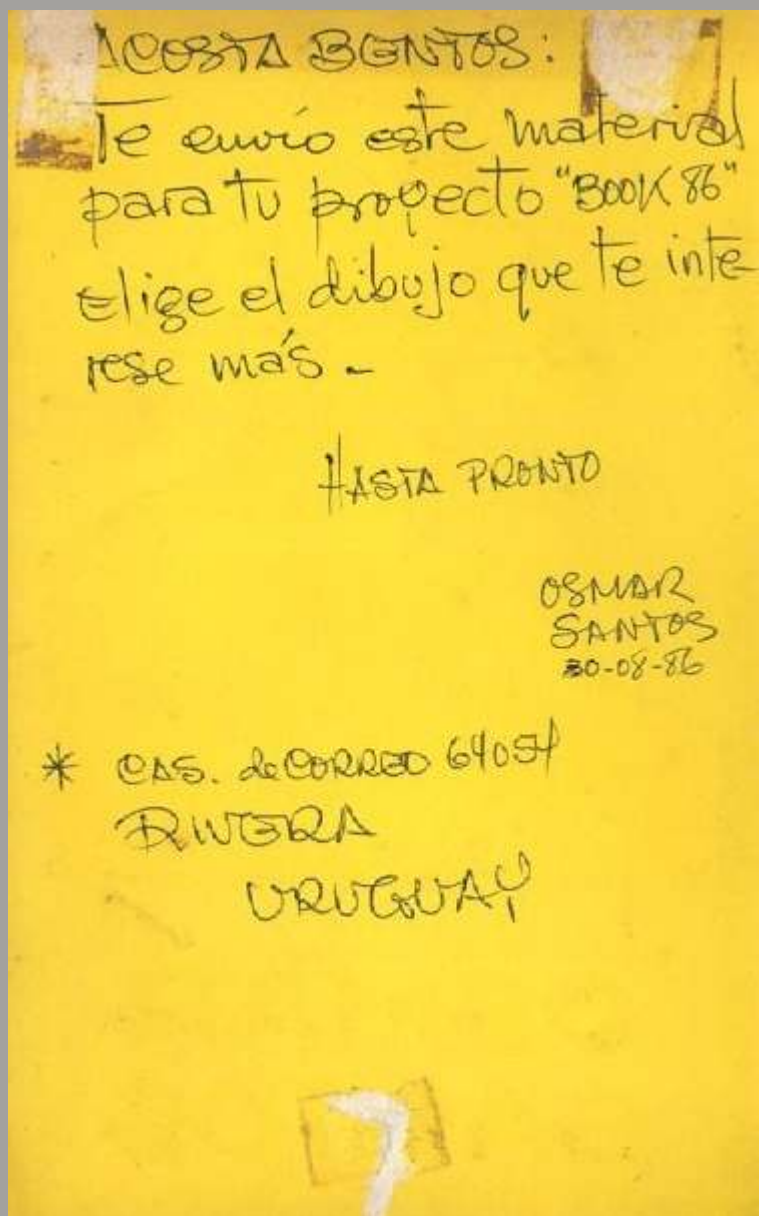 ACOSTA BENTOS:
Te envío este material
para tu proyecto "BOOK 86"
Elige el dibujo que te inte-
rese más -
HASTA PRONTO
OSMAR
SANTOS
30-08-86
* CAS. de CORREO 64054
RIVERA
URUGUAY